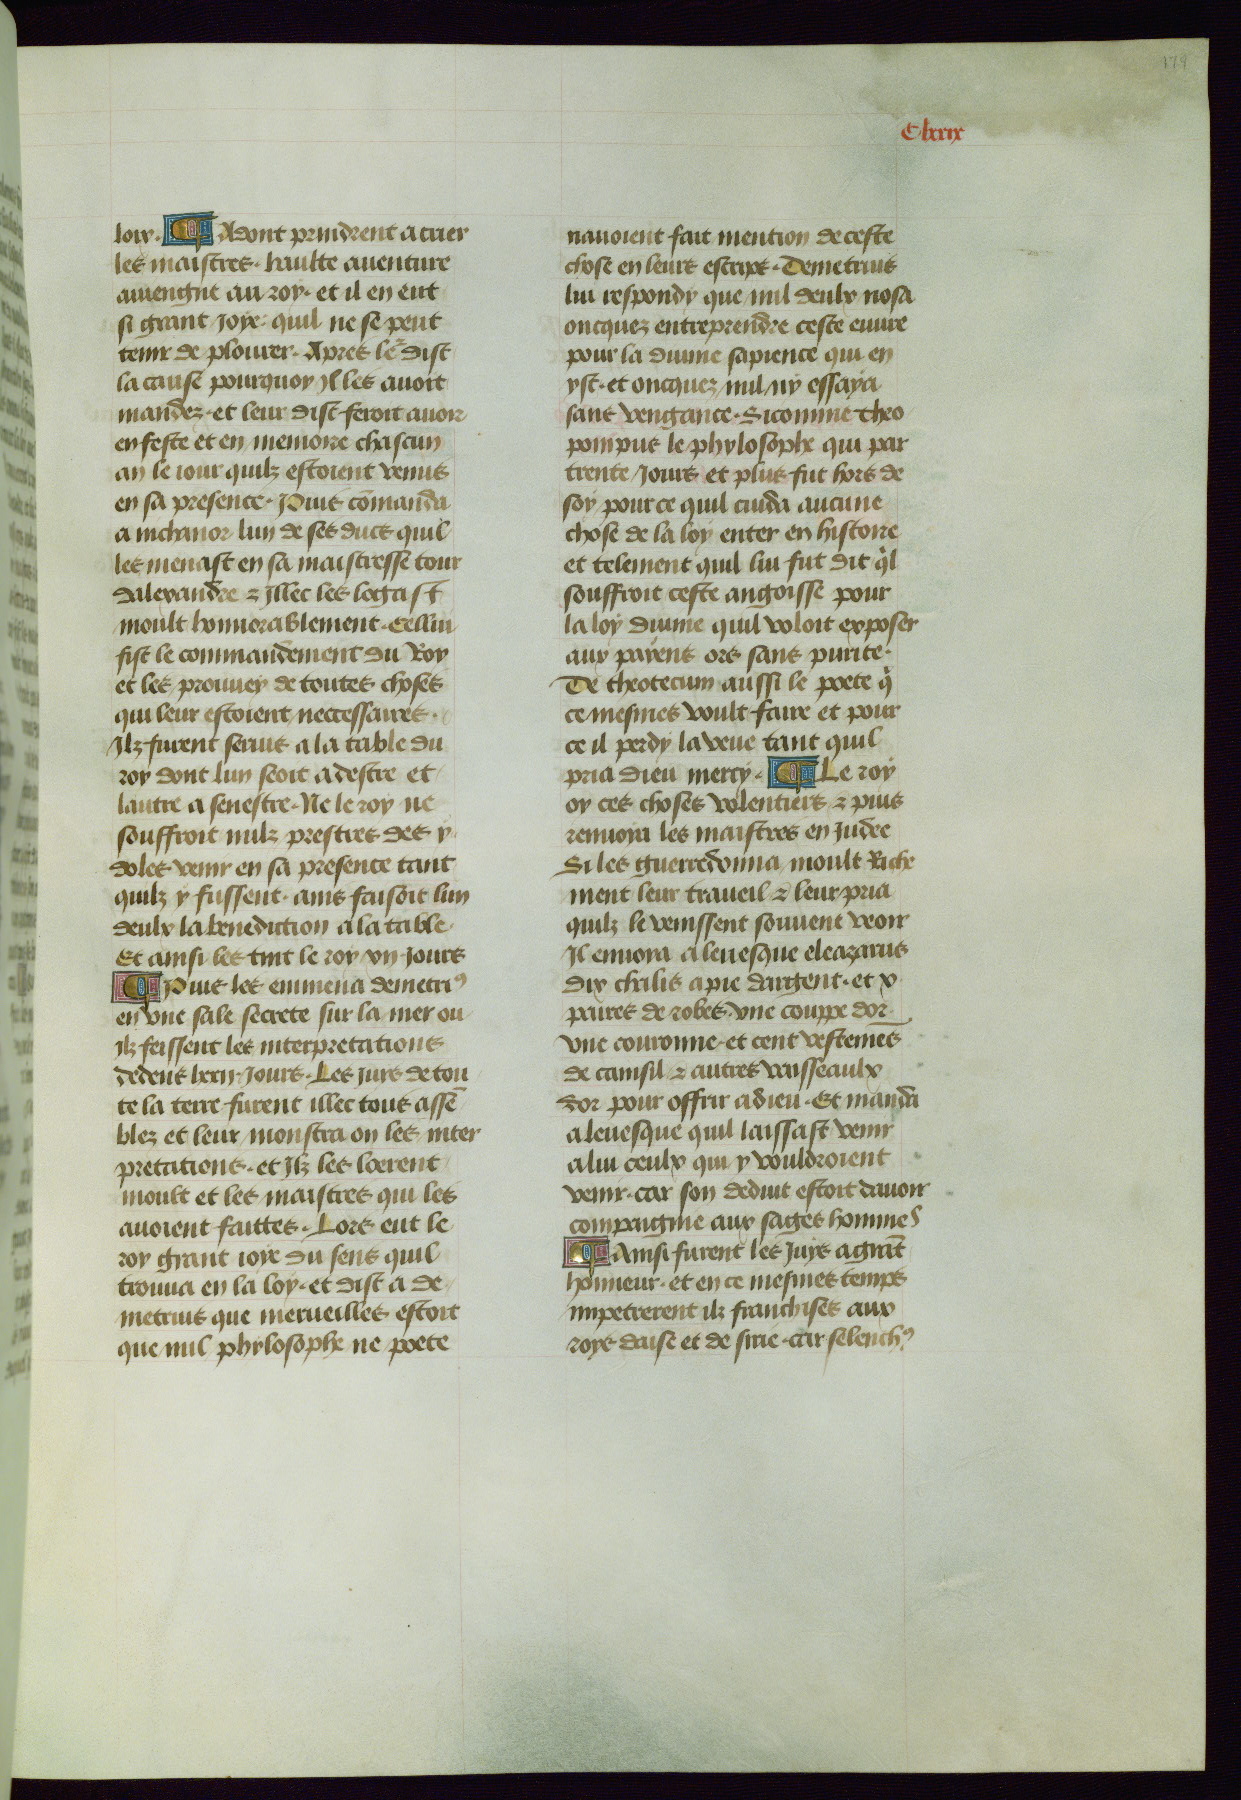 179
C lxxix
loix. Adont prindrent a crier
les maistres. haulte auenture
auiengne au roy. et il en eut
si grant joye. quil ne se peut
tenir de plourer. Apres le͛ dist
la cause pourquoy Jl les auoit
mandez. et leur dist feroit auoir
en feste et en memoire chascun
an le iour quilz estoient venus
en sa presence. Puis cōmanda
a nichanor lun de ses ducs quil
les menast en sa maistresse tour
dalexandre ⁊ Jllec les logast
moult honnorablement. Cellui
fist le commandement du Roy
et les prouuey de toutes choses
qui leur estoient neccessaires.
Jlz furent seruis a la table du
roy dont lun seoit a destre et
lautre a senestre. Ne le roy ne
souffroit nulz prestres des y
doles venir en sa presence tant
quilz y fussent. ains faisoit lun
deulx la benediction a la table
Et ainsi les tint le roy vij jours
Puis les emmena demetriꝰ
en vne sale secrete sur la mer ou
Jlz feissent les interpretations
dedens lxxij. Jours. Les juifs de tou
te la terre furent illec tous assē
blez et leur monstra on les inter
pretations. et Jlz les loerent
moult et les maistres qui les
auoient faittes. Lors eut le
roy grant ioye du sens quil
trouua en la loy. et dist a de
metrius que merueilles estoit
que nul phylosophe ne poete
nauoient fait mention de ceste
chose en leurs escrips. Demetrius
lui respondy que nul deulx nosa
oncquez entreprendre ceste euure
pour la diuine sapience qui en
yst. et oncquez nul ny essaya
sans vengance. Si comme theo
pompus le phylosophe qui par
trente Jours et plus fut hors de
soy pour ce quil cuida aucune
chose de la loy enter en histoire
et telement quil lui fut dit q̉l
souffroit ceste angoisse pour
la loy diuine quil voloit exposer
aux payens ors sans purite.
De theotecum aussi le poete q̉
ce mesmes voult faire et pour
ce il perdy la veue tant quil
pria dieu mercy. Le roy
oy ces choses volentiers ⁊ puis
renuoia les maistres en Judee
Si les guerredonna moult Riche
ment leur traueil ⁊ leur pria
quilz le venissent souuent veoir
Jl enuoia a leuesque eleazarus
dix chalis a pie dargent. et x
paires de robes. vne couppe dor
vne couronne. et cent vestemēs
de cainsil ⁊ autres vaisseaulx
dor pour offrir a dieu. Et manda
a leuesque quil laissast venir
a lui ceulx qui y vouldroient
venir. car son deduit estoit dauoir
compaignie aux sages hommes
Ainsi furent les Juifs a grāt
honneur. et en ce mesmes temps
impetrerent ilz franchises aux
roys daise et de sirie. car seleuchꝰ